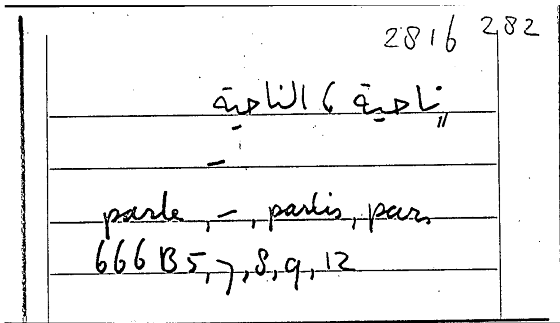 2816 282
ناحية ، الناحية
–
parte, –, partis, par.
666 B 5, 7, 8, 9, 12